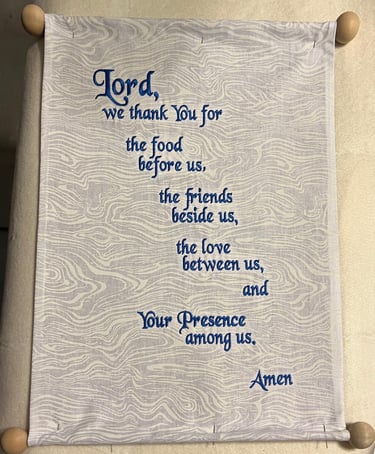 Lord,
we thank You for
the food
before us,
the friends
beside us,
the love
between us,
and
Your Presence
among us.
Amen